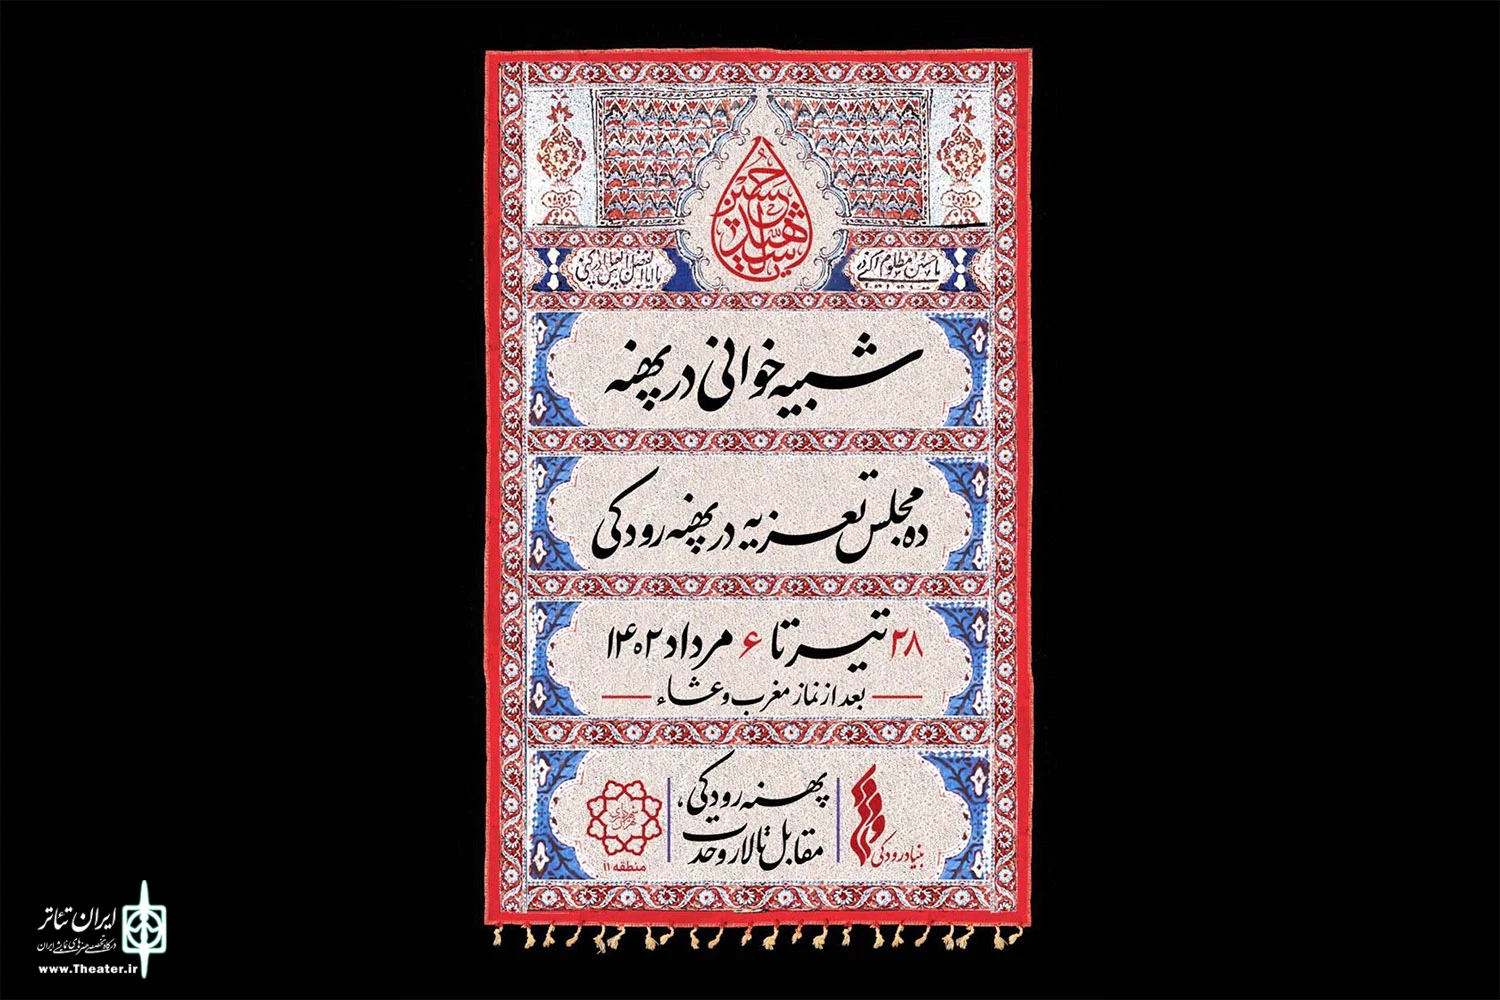 یا حسین شهید
یا حسین مظلوم ادرکنی
یا اباالفضل العباس ادرکنی
شبیه خوانی در پهنه
ده مجلس تعزیه در پهنه رودکی
۲۸ تیر تا ۶ مرداد ۱۴۰۲
بعد از نماز مغرب و عشاء
بنیاد رودکی
پهنه رودکی،
مقابل تالار وحدت
شهرداری تهران
منطقه ۱۱
ایران تئاتر
درگاه تخصصی هنرهای نمایشی ایران
www.Theater.ir